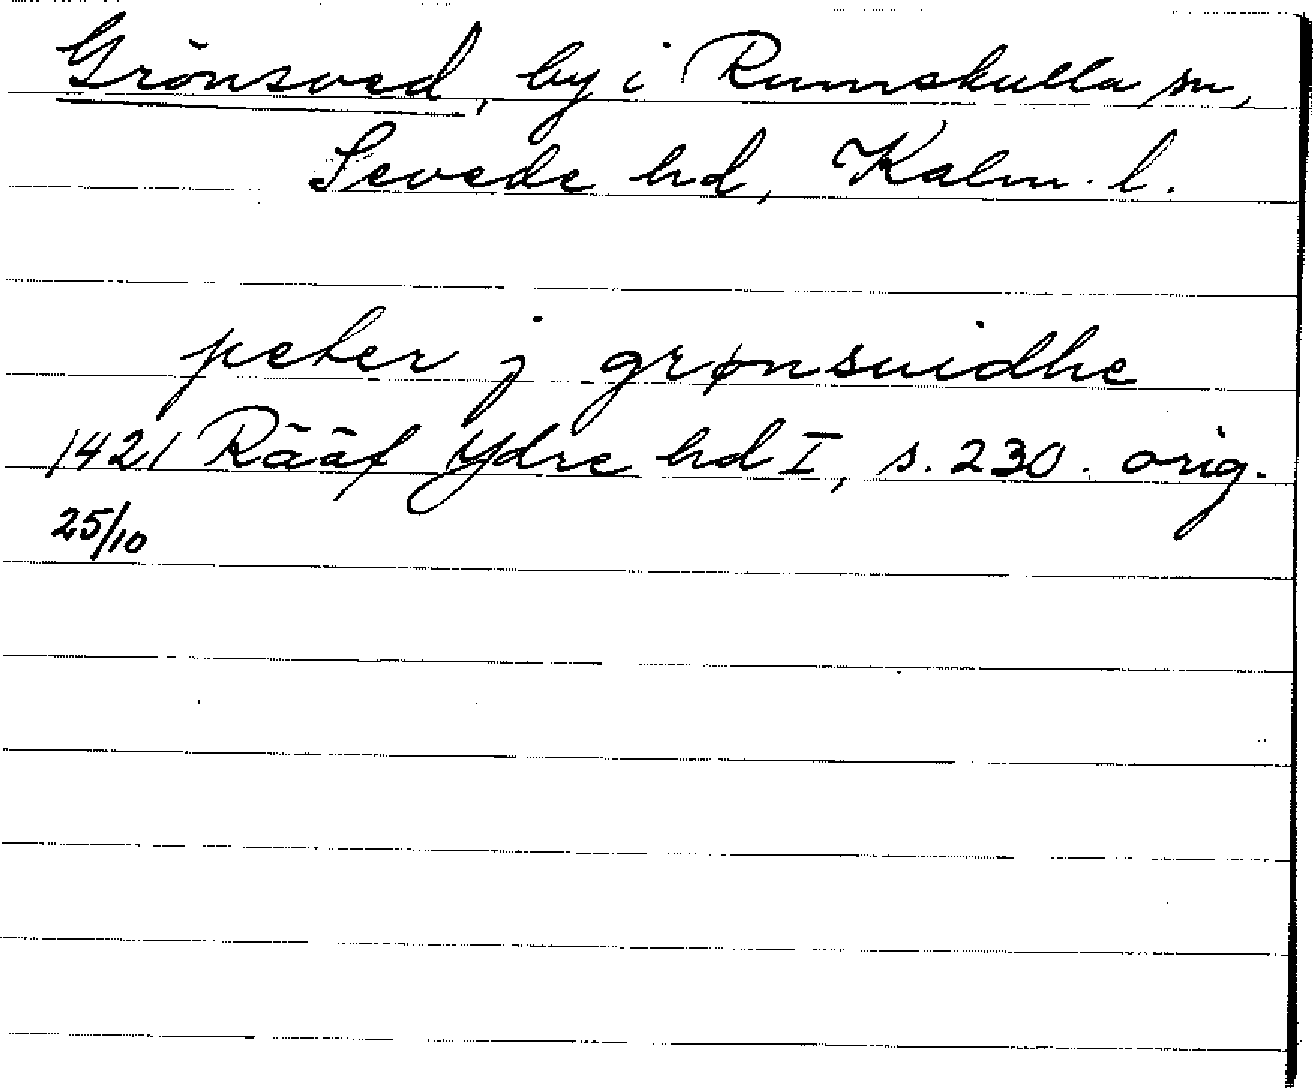 Grönsved, by i Rumskulla sn,
Sevede hd, Kalm. l.
peter j grønsuidhe
1421 Rääf Ydre hd I, s. 230. orig.
25/10